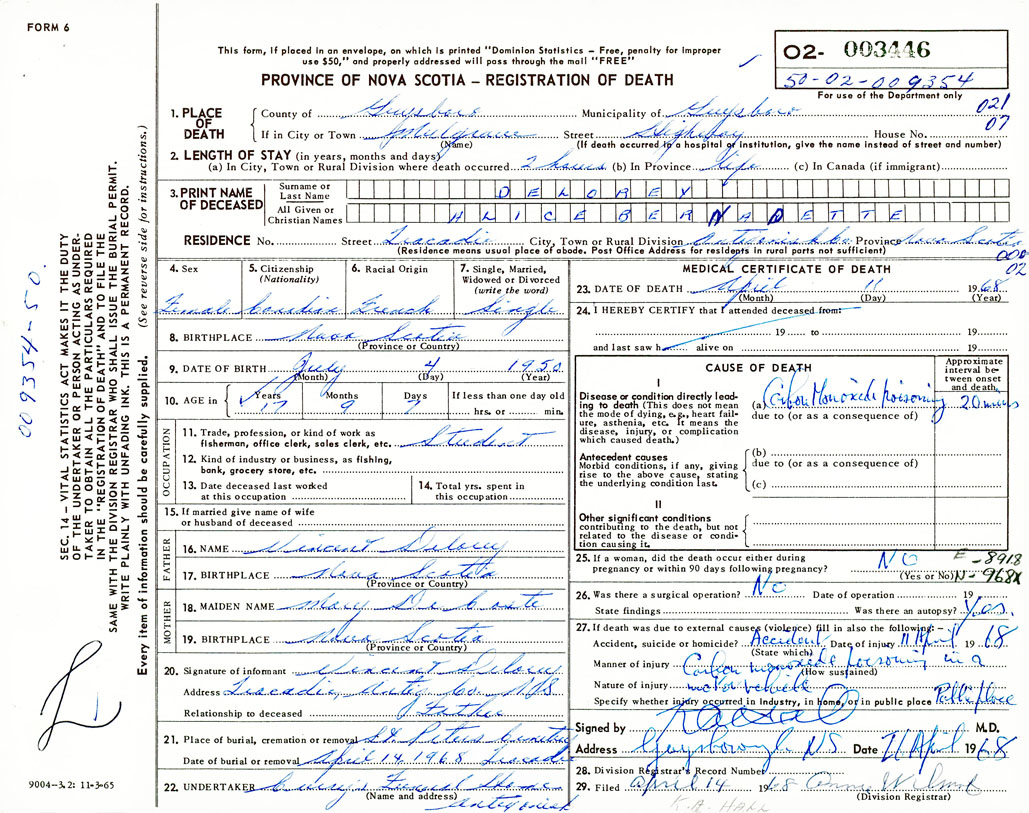 FORM 6
This form, if placed in an envelope, on which is printed "Dominion Statistics – Free, penalty for improper
use $50," and properly addressed will pass through the mail "FREE"
PROVINCE OF NOVA SCOTIA – REGISTRATION OF DEATH
O2- 003446
50-02-009354
For use of the Department only
021
07
1. PLACE OF DEATH
County of Guysboro Municipality of Guysboro
If in City or Town Mulgrave Street Highway House No.
(Name) (If death occurred in a hospital or institution, give the name instead of street and number)
2. LENGTH OF STAY (in years, months and days)
(a) In City, Town or Rural Division where death occurred 2 hours (b) In Province Life (c) In Canada (if immigrant)
3. PRINT NAME OF DECEASED
Surname or Last Name DELOREY
All Given or Christian Names ALICE BERNADETTE
RESIDENCE No. Street Tracadie City, Town or Rural Division Antigonish Co Province Nova Scotia
(Residence means usual place of abode. Post Office Address for residents in rural parts not sufficient)
000
02
4. Sex Female
5. Citizenship (Nationality) Canadian
6. Racial Origin French
7. Single, Married, Widowed or Divorced (write the word) Single
8. BIRTHPLACE Nova Scotia
(Province or Country)
9. DATE OF BIRTH July 4 1950
(Month) (Day) (Year)
10. AGE in Years 17 Months 9 Days 7 If less than one day old
hrs. or min.
OCCUPATION
11. Trade, profession, or kind of work as
fisherman, office clerk, sales clerk, etc. Student
12. Kind of industry or business, as fishing,
bank, grocery store, etc.
13. Date deceased last worked
at this occupation
14. Total yrs. spent in
this occupation
15. If married give name of wife
or husband of deceased
FATHER
16. NAME Vincent Delorey
17. BIRTHPLACE Nova Scotia
(Province or Country)
MOTHER
18. MAIDEN NAME Mary DeCoste
19. BIRTHPLACE Nova Scotia
(Province or Country)
20. Signature of informant Vincent Delorey
Address Tracadie Antig Co N.S.
Relationship to deceased Father
21. Place of burial, cremation or removal St Peters Cemetery
Date of burial or removal April 14 1968 Tracadie
22. UNDERTAKER Funeral Home
(Name and address) Antigonish
MEDICAL CERTIFICATE OF DEATH
23. DATE OF DEATH April 11 1968
(Month) (Day) (Year)
24. I HEREBY CERTIFY that I attended deceased from:
19 to 19
and last saw h alive on 19
CAUSE OF DEATH
Approximate interval between onset and death
I
Disease or condition directly leading to death (This does not mean the mode of dying, e.g., heart failure, asthenia, etc. It means the disease, injury, or complication which caused death.)
(a) Carbon Monoxide poisoning 20 mins
due to (or as a consequence of)
Antecedent causes
Morbid conditions, if any, giving rise to the above cause, stating the underlying condition last.
(b)
due to (or as a consequence of)
(c)
II
Other significant conditions
contributing to the death, but not related to the disease or condition causing it.
25. If a woman, did the death occur either during
pregnancy or within 90 days following pregnancy? NO
(Yes or No)
E-8918
N-968X
26. Was there a surgical operation? NO Date of operation 19
State findings Was there an autopsy? Yes.
27. If death was due to external causes (violence) fill in also the following: –
Accident, suicide or homicide? Accident Date of injury 11 April 1968
(State which)
Manner of injury Carbon monoxide poisoning in a
(How sustained)
Nature of injury motor vehicle
Specify whether injury occurred in industry, in home, or in public place Public place
Signed by M.D.
Address Guysborough NS Date 21 April 1968
28. Division Registrar's Record Number
29. Filed April 14 1968
(Division Registrar)
K.A. HALL
SEC. 14 – VITAL STATISTICS ACT MAKES IT THE DUTY
OF THE UNDERTAKER OR PERSON ACTING AS UNDER-
TAKER TO OBTAIN ALL THE PARTICULARS REQUIRED
IN THE "REGISTRATION OF DEATH" AND TO FILE THE
SAME WITH THE DIVISION REGISTRAR WHO SHALL ISSUE THE BURIAL PERMIT.
WRITE PLAINLY WITH UNFADING INK. THIS IS A PERMANENT RECORD.
Every item of information should be carefully supplied. (See reverse side for instructions.)
009354-50.
9004–3.2: 11-3-65